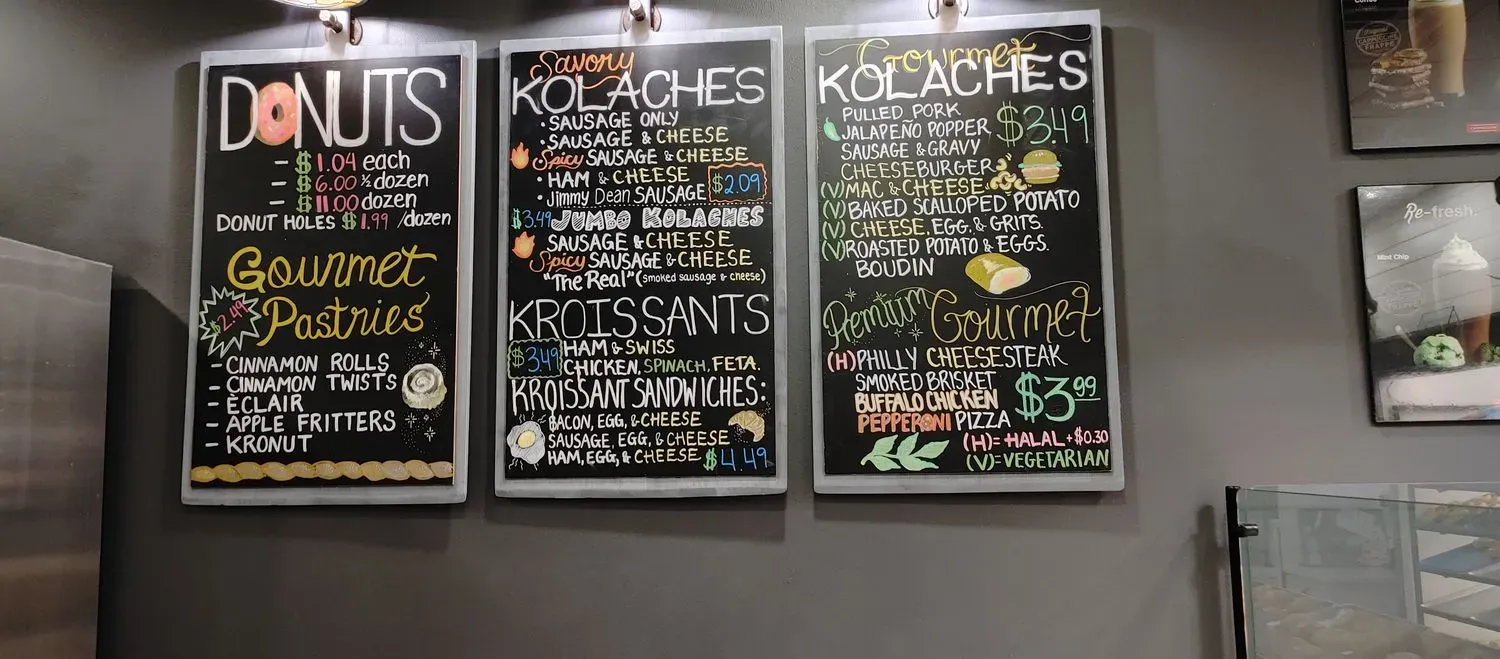 DONUTS
- $1.04 each
- $6.00 ½ dozen
- $11.00 dozen
DONUT HOLES $1.99 /dozen
Gourmet
Pastries
$2.49
- CINNAMON ROLLS
- CINNAMON TWISTS
- ÈCLAIR
- APPLE FRITTERS
- KRONUT
Savory
KOLACHES
• SAUSAGE ONLY
• SAUSAGE & CHEESE
Spicy SAUSAGE & CHEESE
• HAM & CHEESE
• Jimmy Dean SAUSAGE $2.09
$3.49 JUMBO KOLACHES
SAUSAGE & CHEESE
Spicy SAUSAGE & CHEESE
"The Real" (smoked sausage & cheese)
KROISSANTS
$3.49 HAM & SWISS
CHICKEN, SPINACH, FETA.
KROISSANT SANDWICHES:
BACON, EGG, & CHEESE
SAUSAGE, EGG, & CHEESE
HAM, EGG, & CHEESE $4.49
Gourmet
KOLACHES
PULLED PORK
JALAPEÑO POPPER, $3.49
SAUSAGE & GRAVY
CHEESEBURGER
(V) MAC & CHEESE
(V) BAKED SCALLOPED POTATO
(V) CHEESE, EGG, & GRITS.
(V) ROASTED POTATO & EGGS.
BOUDIN
Premium Gourmet
(H) PHILLY CHEESESTEAK
SMOKED BRISKET
BUFFALO CHICKEN
PEPPERONI PIZZA
$3.99
(H)= HALAL +$0.30
(V)= VEGETARIAN
CAPPUCCINO
FRAPPE
Re-fresh.
Mint Chip